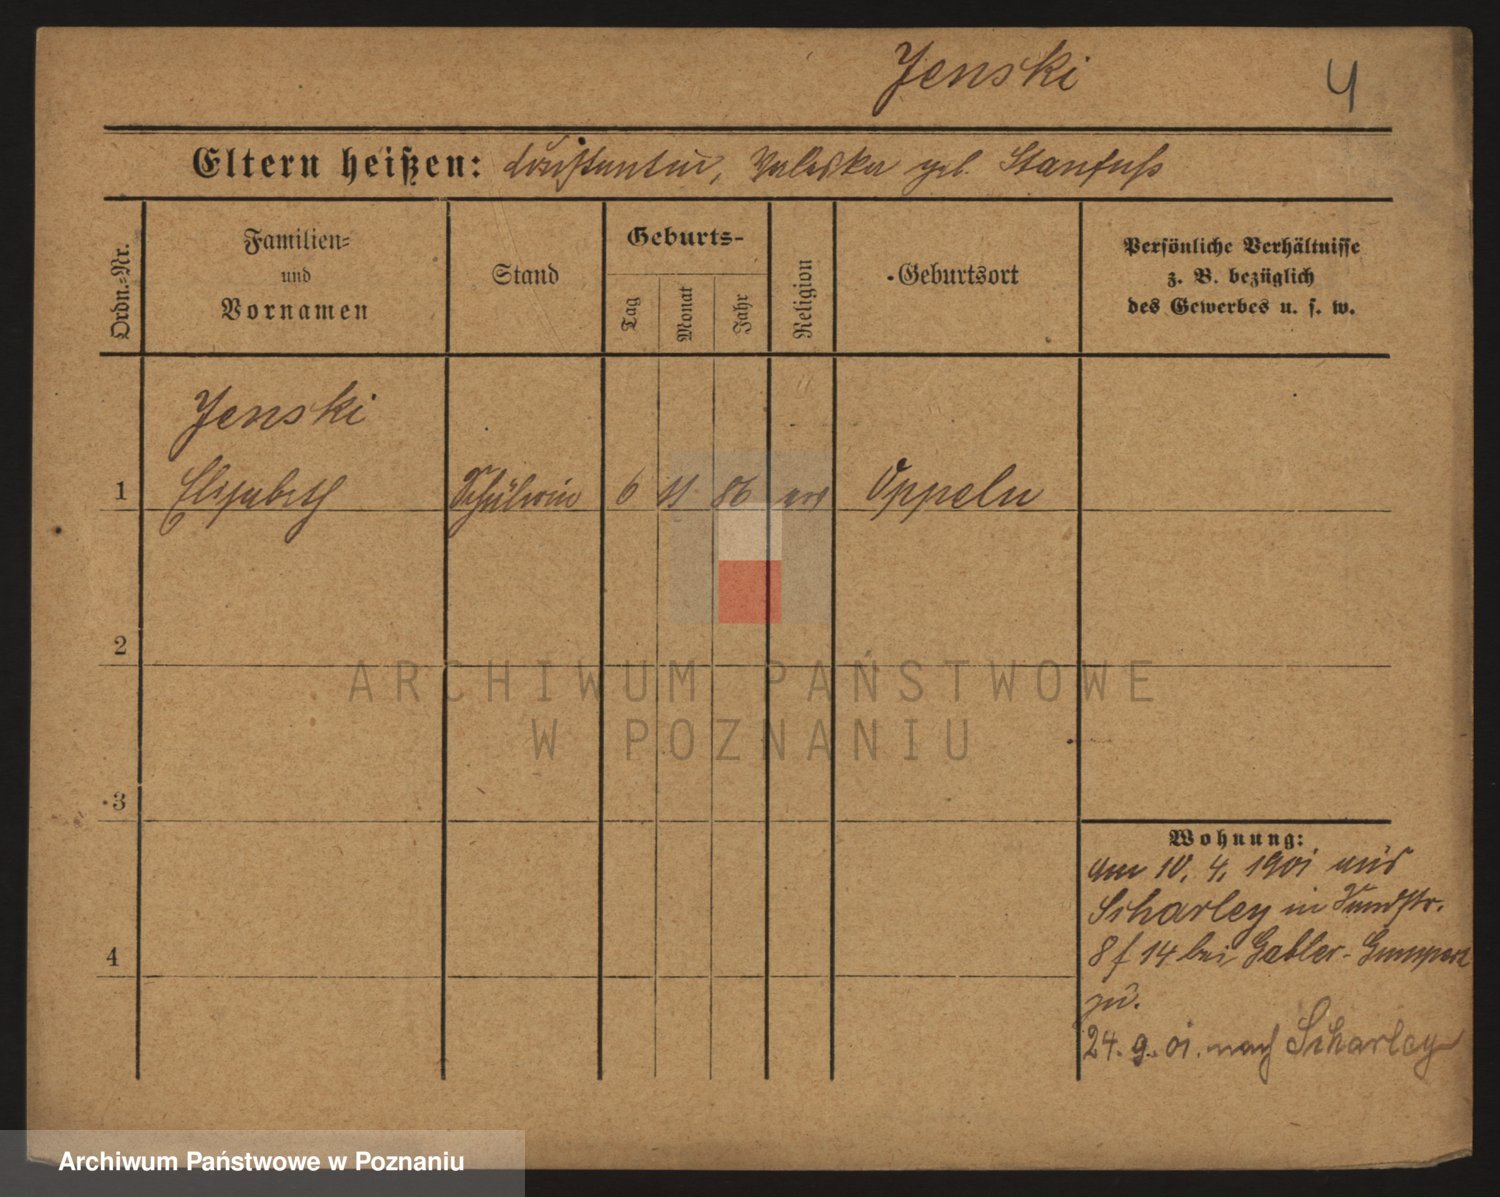 Jenski
4
Eltern heißen: Constantin, Valeska geb. Stanfuß
Ordn.-Nr.
Familien-
und
Vornamen
Stand
Geburts-
Tag
Monat
Jahr
Religion
Geburtsort
Persönliche Verhältnisse
z. B. bezüglich
des Gewerbes u. s. w.
Jenski
1 Elisabeth Schülerin 6 11 86 Oppeln
2
3
4
Wohnung:
am 10. 4. 1901 aus
Scharley in
8 f 14 bei Gabler-Gumpert
zu.
24. 9. 01. nach Scharley
ARCHIWUM PAŃSTWOWE
W POZNANIU
Archiwum Państwowe w Poznaniu